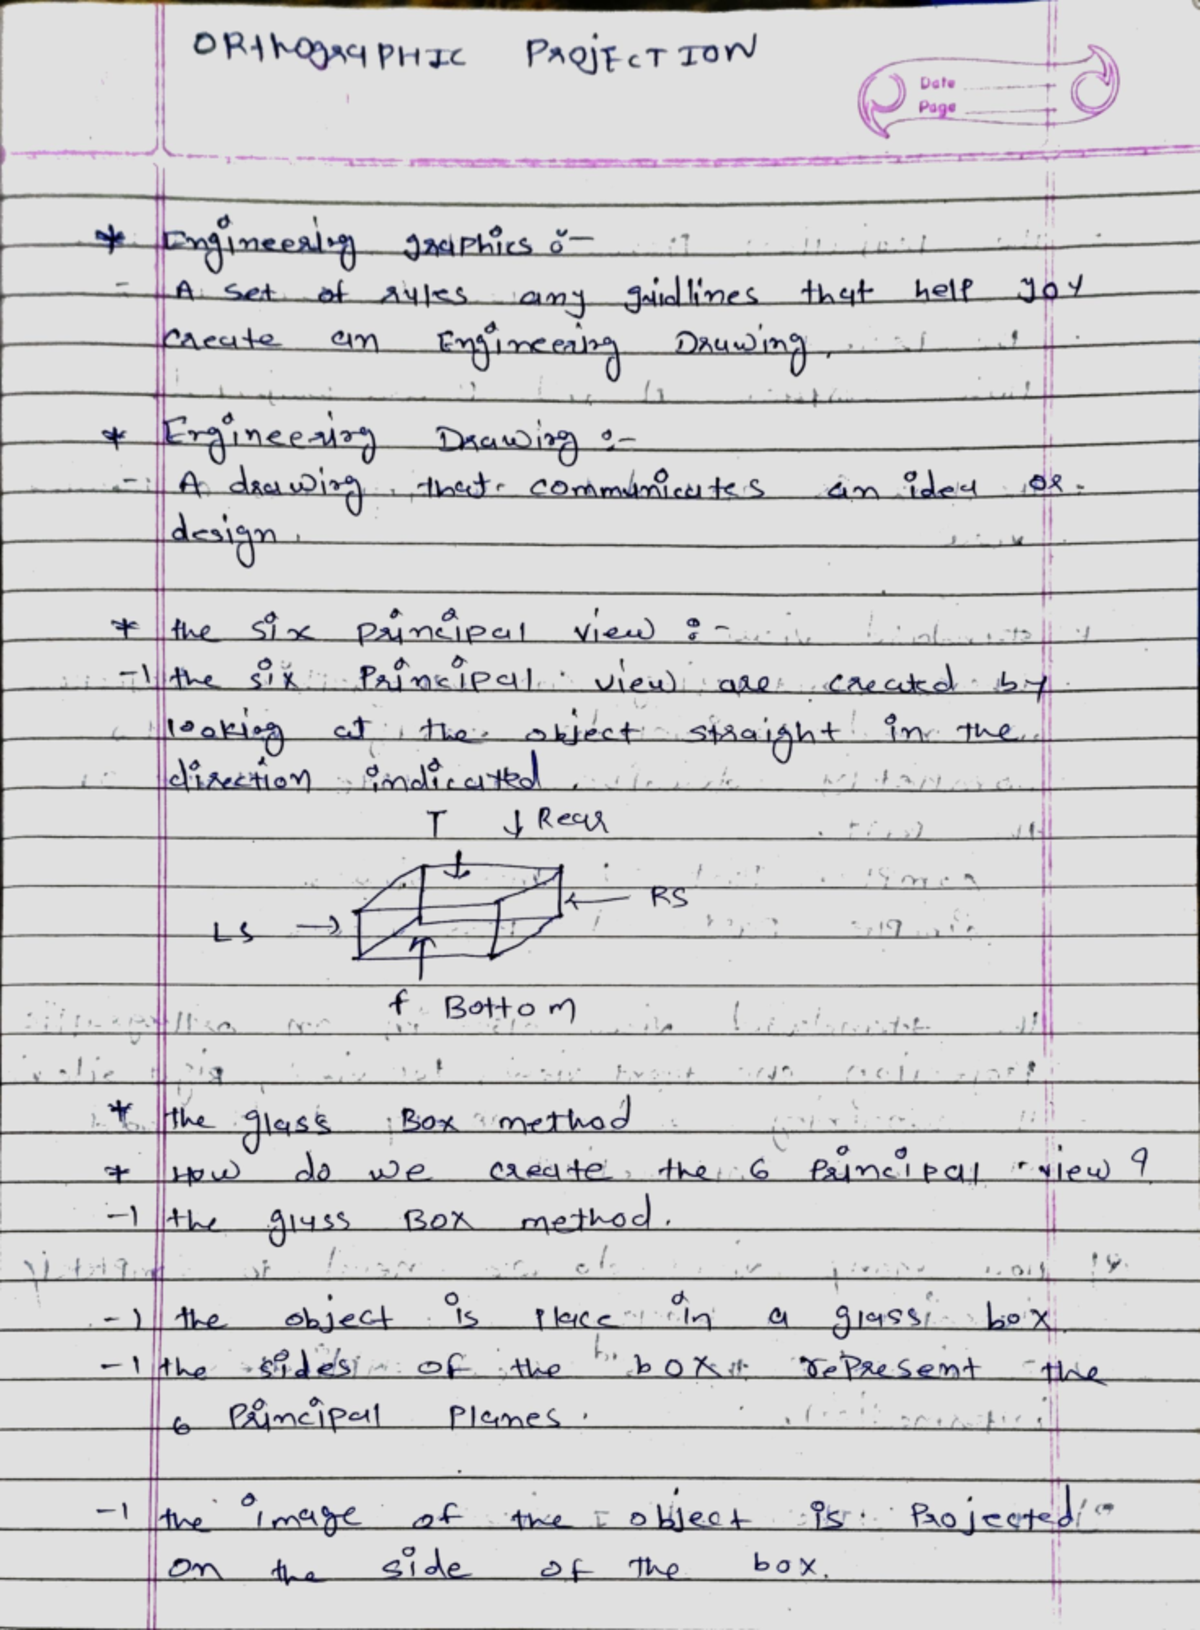 ORthogRaPHIC PROjECTION
Date
Page
* Engineering graphics :-
- A set of rules any guidlines that help you
create an Engineering Drawing.
* Engineering Drawing :-
- A drawing that communicates an idea or
design.
* the six principal view :-
-1 the six Principal view are created by
looking at the object straight in the
direction indicated.
T ↓ Rear
LS → ← RS
f Bottom
* the glass Box method
* How do we create the 6 Principal view ?
-1 the glass Box method.
-1 the object is place in a glass box
-1 the sides of the box represent the
6 Principal Planes.
-1 the image of the object is Projected
on the side of the box.